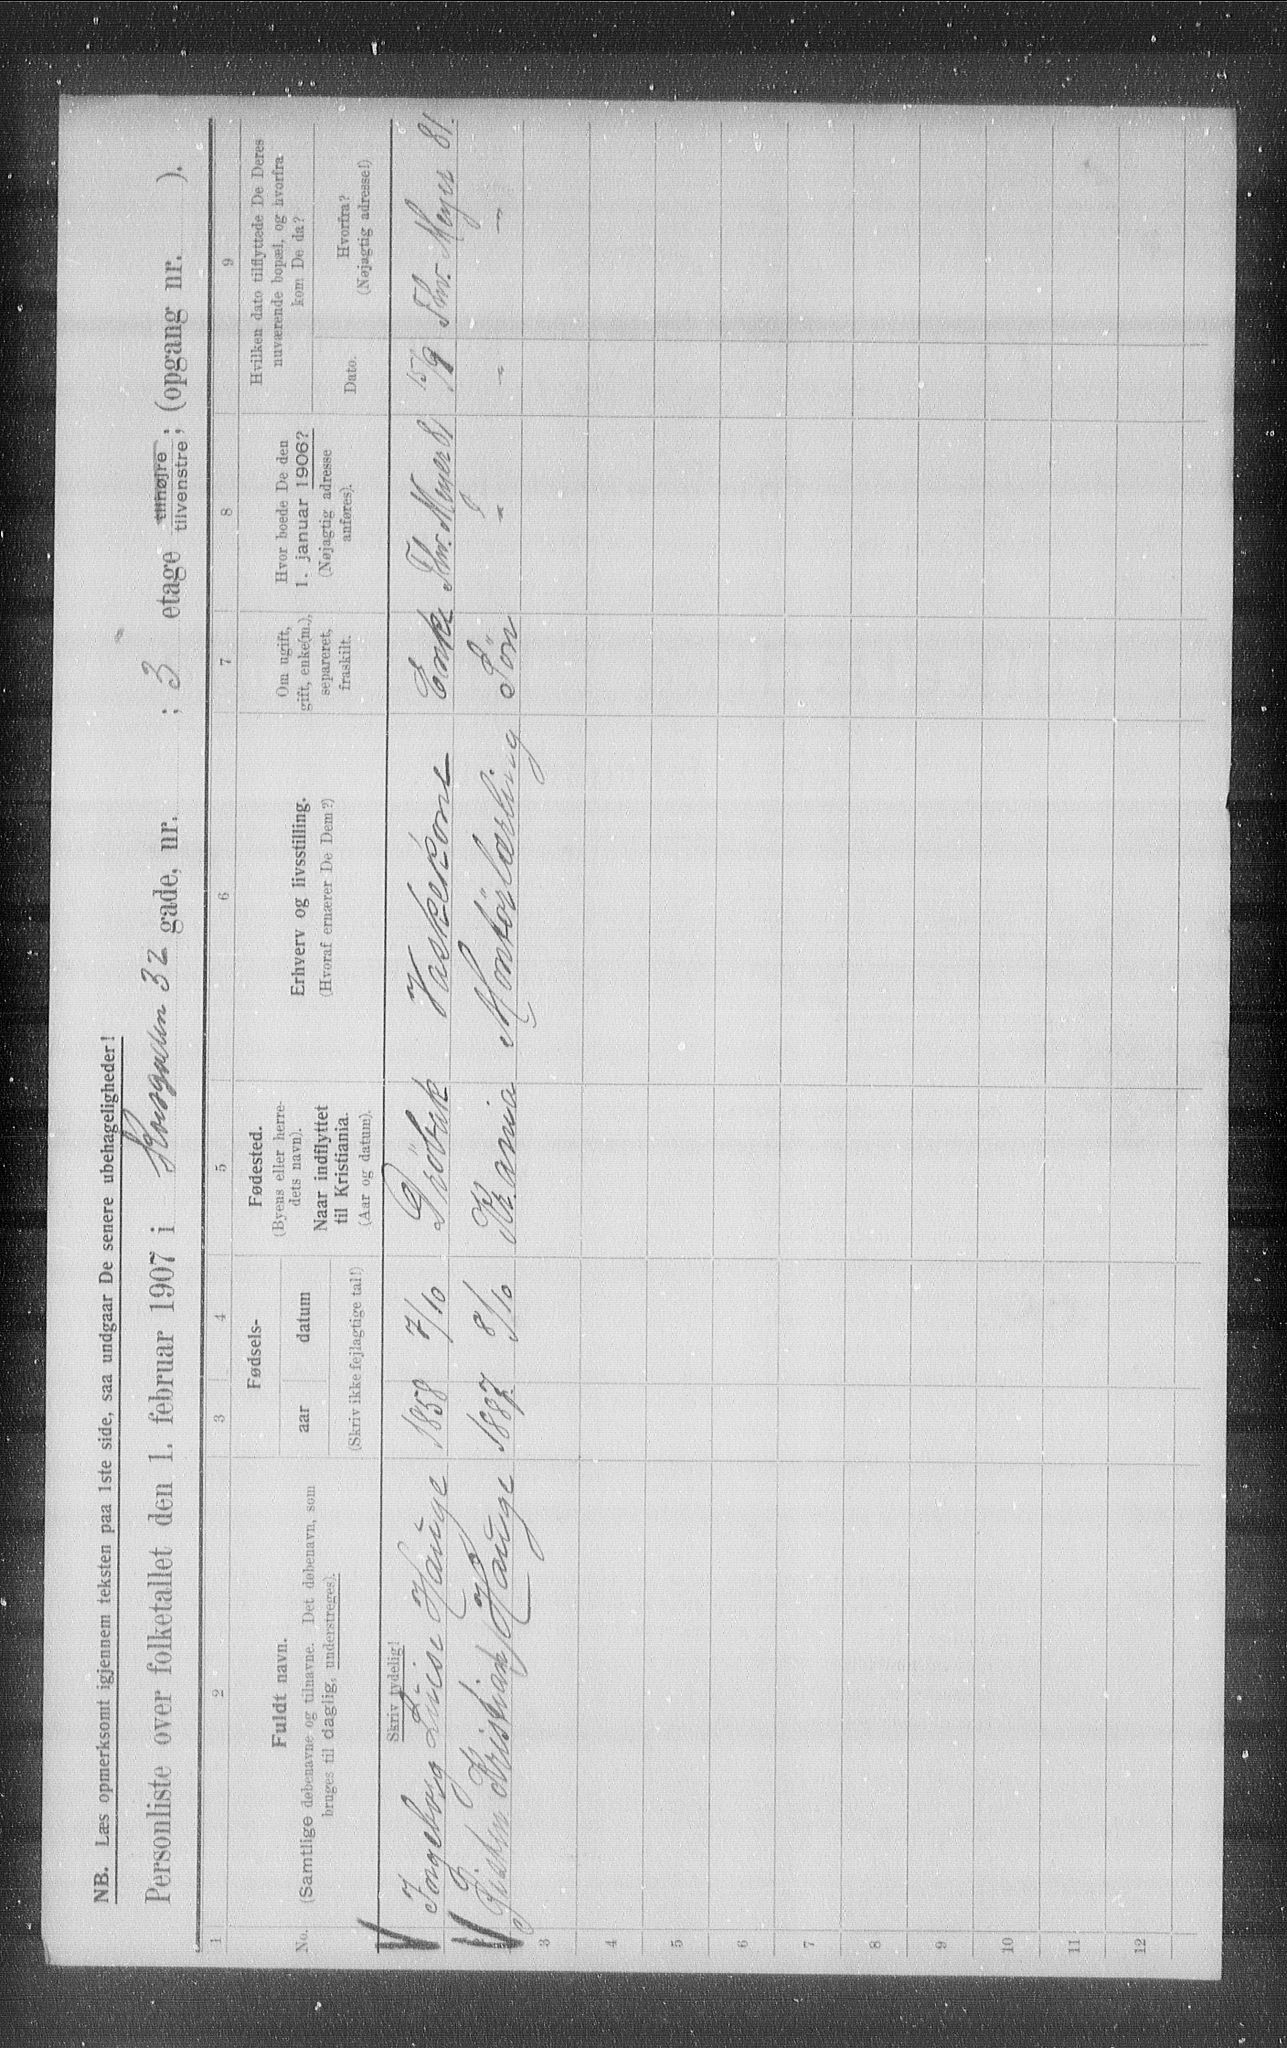 NB. Læs opmerksomt igjennem teksten paa 1ste side, saa undgaar De senere ubehageligheder!
Personliste over folketallet den 1. februar 1907 i Korsgaden 32 gade, nr. ; 3 etage tilhøjre tilvenstre; (opgang nr. ).
1 2 3 4 5 6 7 8 9
No. Fuldt navn. (Samtlige døbenavne og tilnavne. Det døbenavn, som bruges til daglig, understreges).
Fødsels- aar datum (Skriv ikke fejlagtige tal!)
Fødested. (Byens eller herredets navn). Naar indflyttet til Kristiania. (Aar og datum).
Erhverv og livsstilling. (Hvoraf ernærer De Dem?)
Om ugift, gift, enke(m.), separeret, fraskilt.
Hvor boede De den 1. januar 1906? (Nøjagtig adresse anføres).
Hvilken dato tilflyttede De Deres nuværende bopæl, og hvorfra kom De da?
Dato. Hvorfra? (Nøjagtig adresse!)
Skriv tydelig!
Ingeborg Lovise Hauge 1858 7/10 Dröbak Vaskekone Enke Thv. Meyer 81 15/9 Thv. Meyer 81.
Kristian Hauge 1887. 8/10 Kr.ania Montörlærling Sön " - -
3
4
5
6
7
8
9
10
11
12